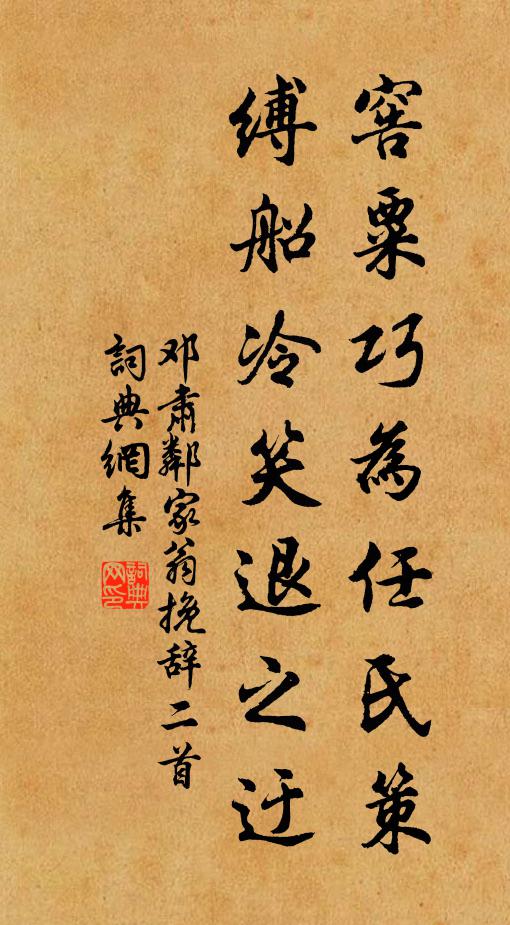 窖粟巧為任氏策
缚船冷笑退之迂
邓肅鄰家翁挽辞二首
詞典網集
詞典网印